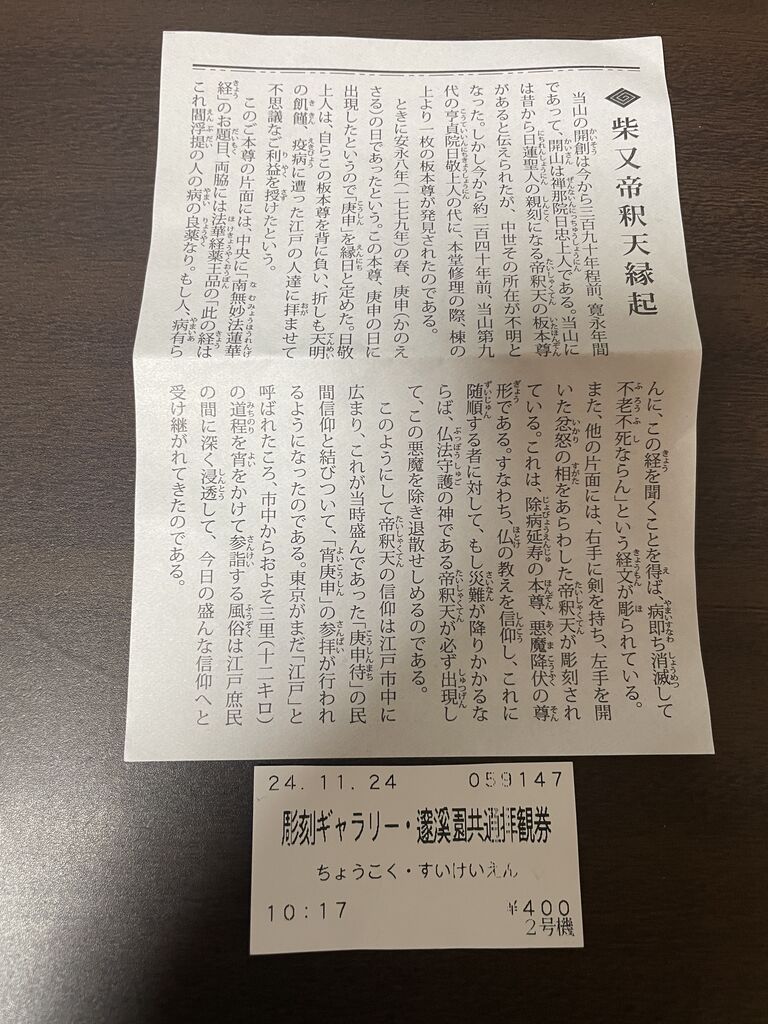 柴又帝釈天縁起
当山の開創は今から三百九十年程前、寛永年間
であって、開山は禅那院日忠上人である。当山に
は昔から日蓮聖人の親刻になる帝釈天の板本尊
があると伝えられたが、中世その所在が不明と
なった。しかし今から約二百四十年前、当山第九
代の亨貞院日敬上人の代に、本堂修理の際、棟の
上より一枚の板本尊が発見されたのである。
ときに安永八年(一七七九年)の春、庚申(かのえ
さる)の日であったという。この本尊、庚申の日に
出現したというので「庚申」を縁日と定めた。日敬
上人は、自らこの板本尊を背に負い、折しも天明
の飢饉、疫病に遭った江戸の人達に拝ませて
不思議なご利益を授けたという。
このご本尊の片面には、中央に「南無妙法蓮華
経」のお題目、両脇には法華経薬王品の「此の経は
これ閻浮提の人の病の良薬なり。もし人、病有ら
んに、この経を聞くことを得ば、病即ち消滅して
不老不死ならん」という経文が彫られている。
また、他の片面には、右手に剣を持ち、左手を開
いた忿怒の相をあらわした帝釈天が彫刻され
ている。これは、除病延寿の本尊、悪魔降伏の尊
形である。すなわち、仏の教えを信仰し、これに
随順する者に対して、もし災難が降りかかるな
らば、仏法守護の神である帝釈天が必ず出現し
て、この悪魔を除き退散せしめるのである。
このようにして帝釈天の信仰は江戸市中に
広まり、これが当時盛んであった「庚申待」の民
間信仰と結びついて、「宵庚申」の参拝が行われ
るようになったのである。東京がまだ「江戸」と
呼ばれたころ、市中からおよそ三里(十二キロ)
の道程を宵をかけて参詣する風俗は江戸庶民
の間に深く浸透して、今日の盛んな信仰へと
受け継がれてきたのである。
24.11.24 059147
彫刻ギャラリー・邃溪園共通拝観券
ちょうこく・すいけいえん
10:17 ¥400
2号機